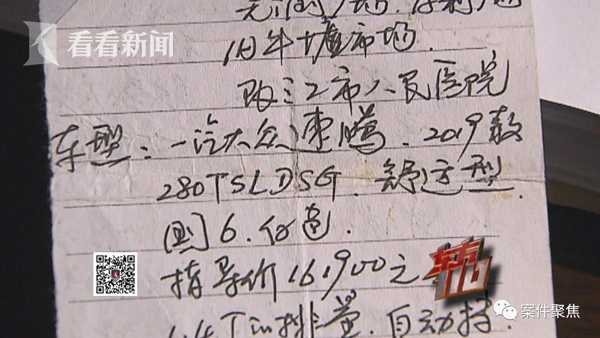 看看新闻
旧牛墟市场.
阳江市人民医院
车型:一汽大众速腾.2019款
280TSLDSG.舒适型.
国6.白色.
指导价161900元
1.4T的排量.自动挡.
案件聚焦